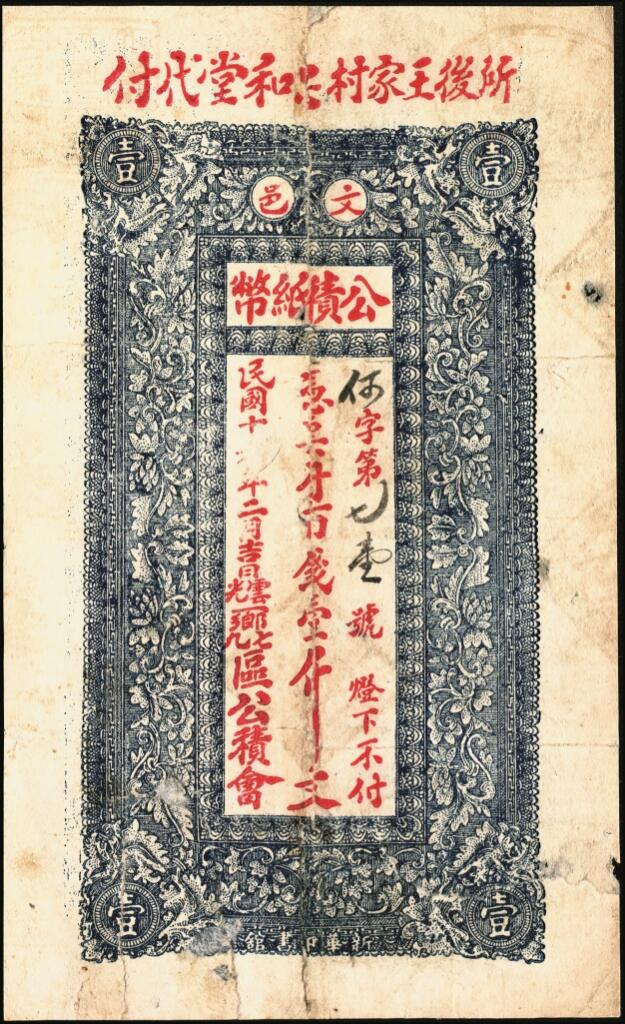 所後王家村 和堂代付
壹 壹
文邑
公積紙幣
何字第七壹號 燈下不付
憑 付市錢壹仟文
民國十 年二月吉日雲光 區公積會
壹 壹
新華印書館